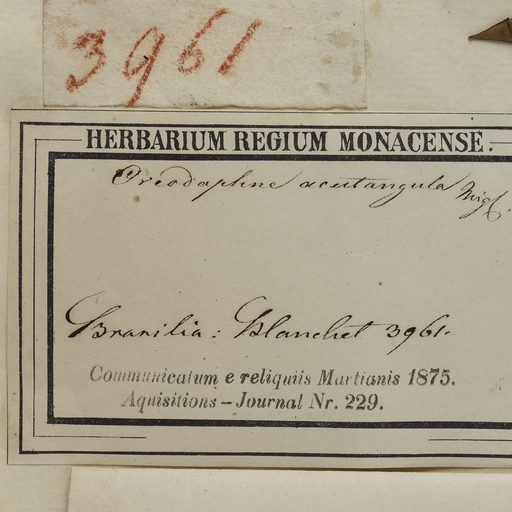 3961
HERBARIUM REGIUM MONACENSE.
Oreodaphne acutangula Miq.
Brasilia: Blanchet 3961.
Communicatum e reliquiis Martianis 1875.
Aquisitions – Journal Nr. 229.